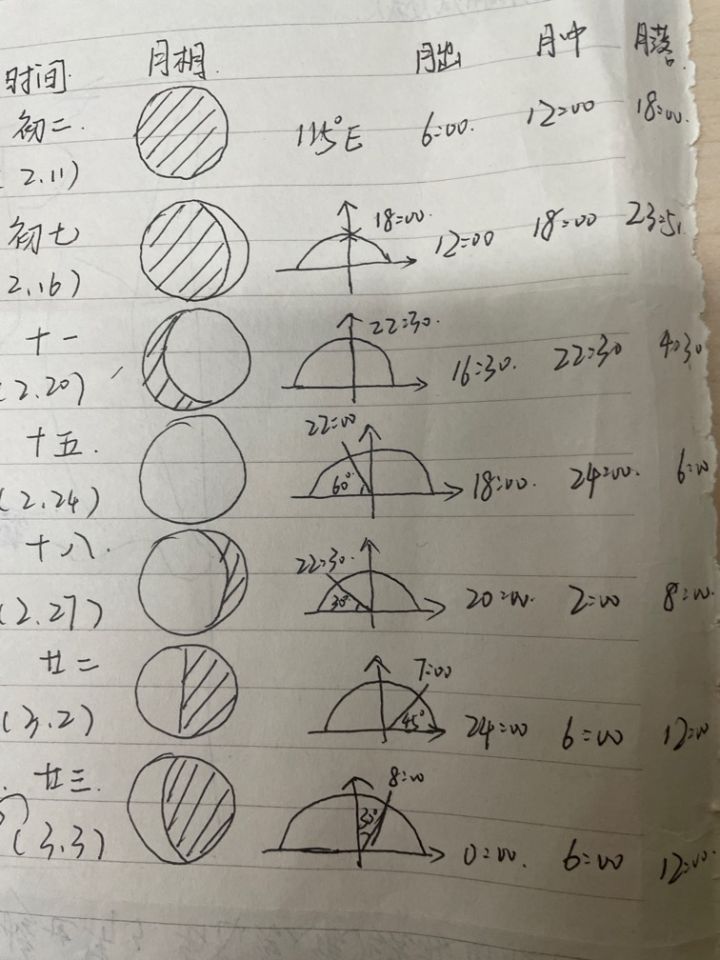 时间 月相 月出 月中 月落
初二. 115°E 6:00. 12:00 18:00.
2.11)
初七 18:00. 12:00 18:00 23:51
2.16)
十一 22:30. 16:30. 22:30 4:30
(2.20)
十五. 22:00 60° 18:00. 24:00. 6:00
(2.24)
十八. 22:30. 30° 20:00. 2:00 8:00.
(2.27)
廿二 7:00 45° 24:00 6:00 12:00
(3.2)
廿三. 8:00 30° 0:00. 6:00 12:00.
(3.3)